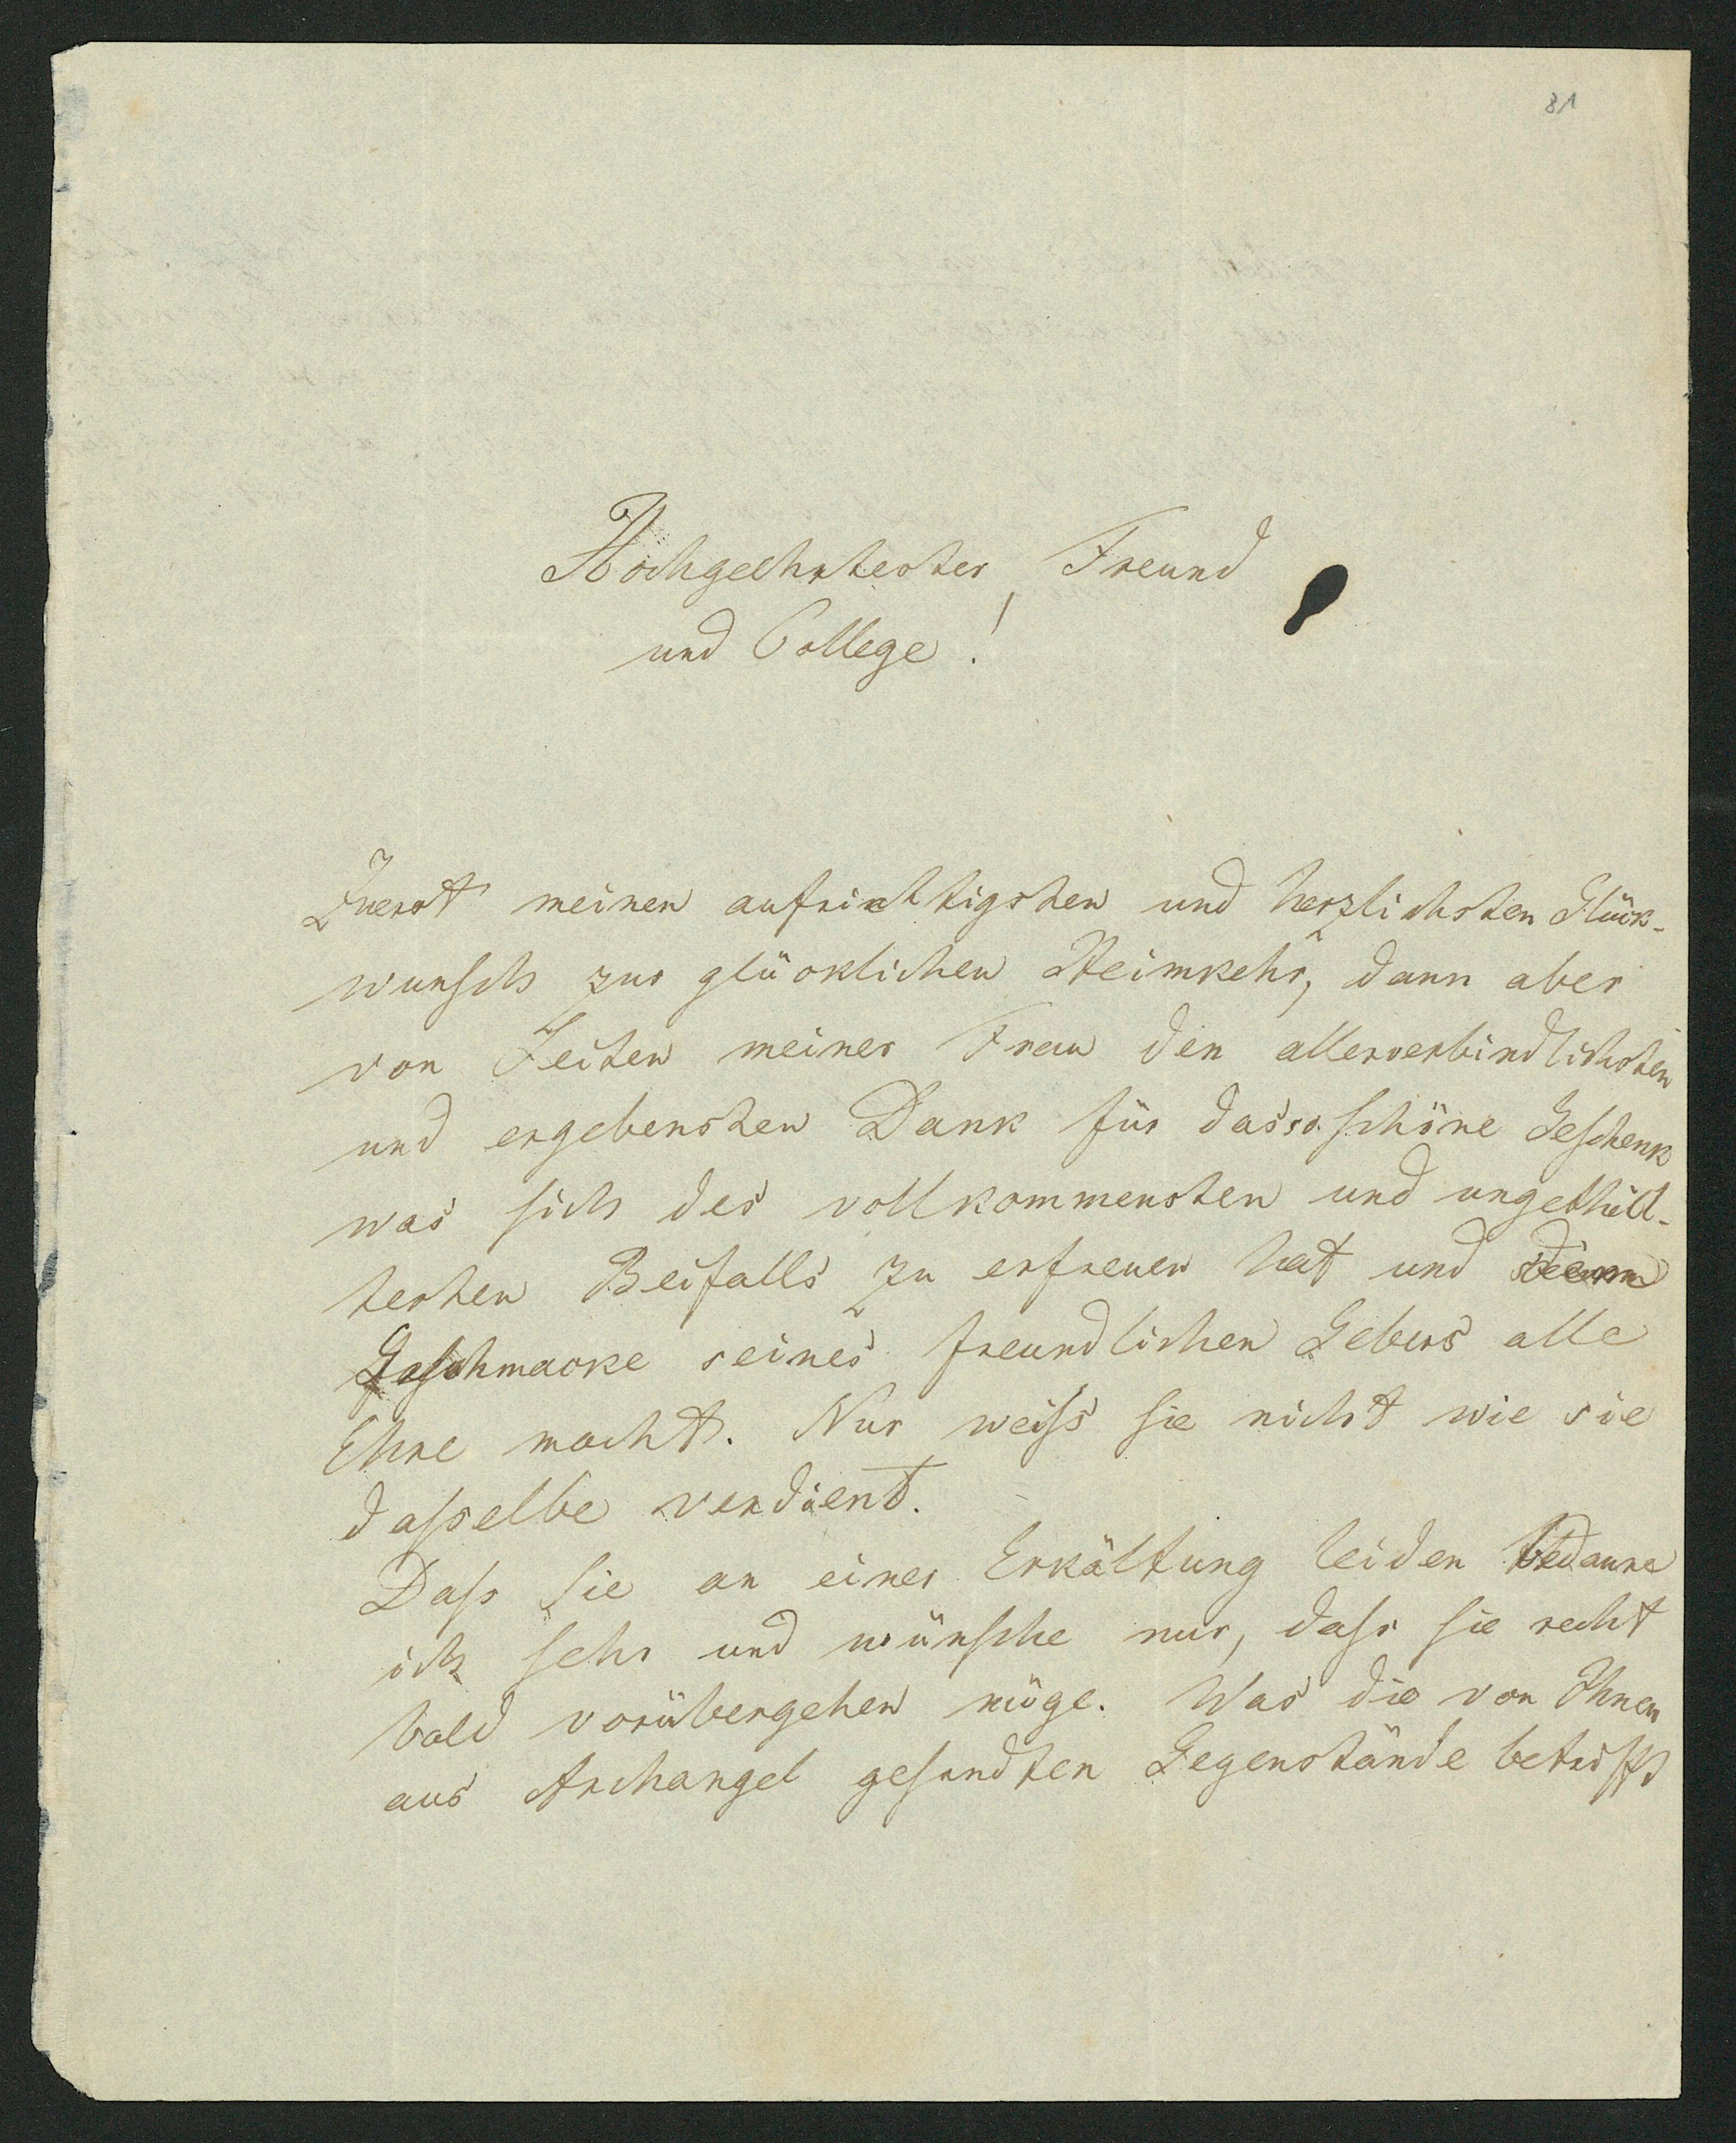 81
Hochgeehrtester Freund
und College!
Zuerst meinen aufrichtigsten und herzlichsten Glück-
wunsch zur glücklichen Heimkehr, dann aber
von Seiten meiner Frau den allerverbindlichsten
und ergebensten Dank für das schöne Geschenk
was sich des vollkommensten und ungetheil-
testen Beifalls zu erfreuen hat und dem
Geschmacke seines freundlichen Gebers alle
Ehre macht. Nur weiss sie nicht wie sie
dasselbe verdient.
Dass Sie an einer Erkältung leiden bedaure
ich sehr und wünsche nur, dass sie recht
bald vorübergehen möge. Was die von Ihnen
aus Archangel gesandten Gegenstände betrifft